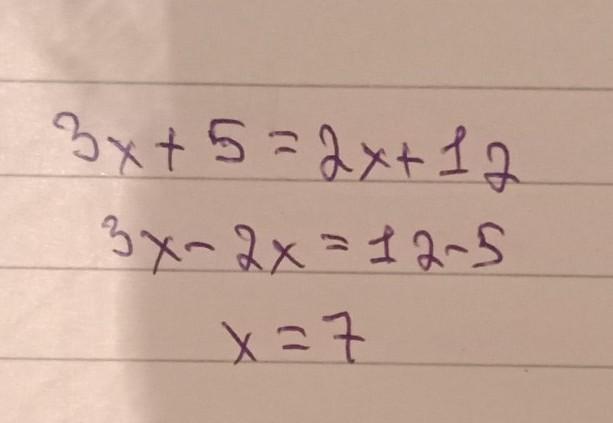 3x+5=2x+12
3x-2x=12-5
x=7